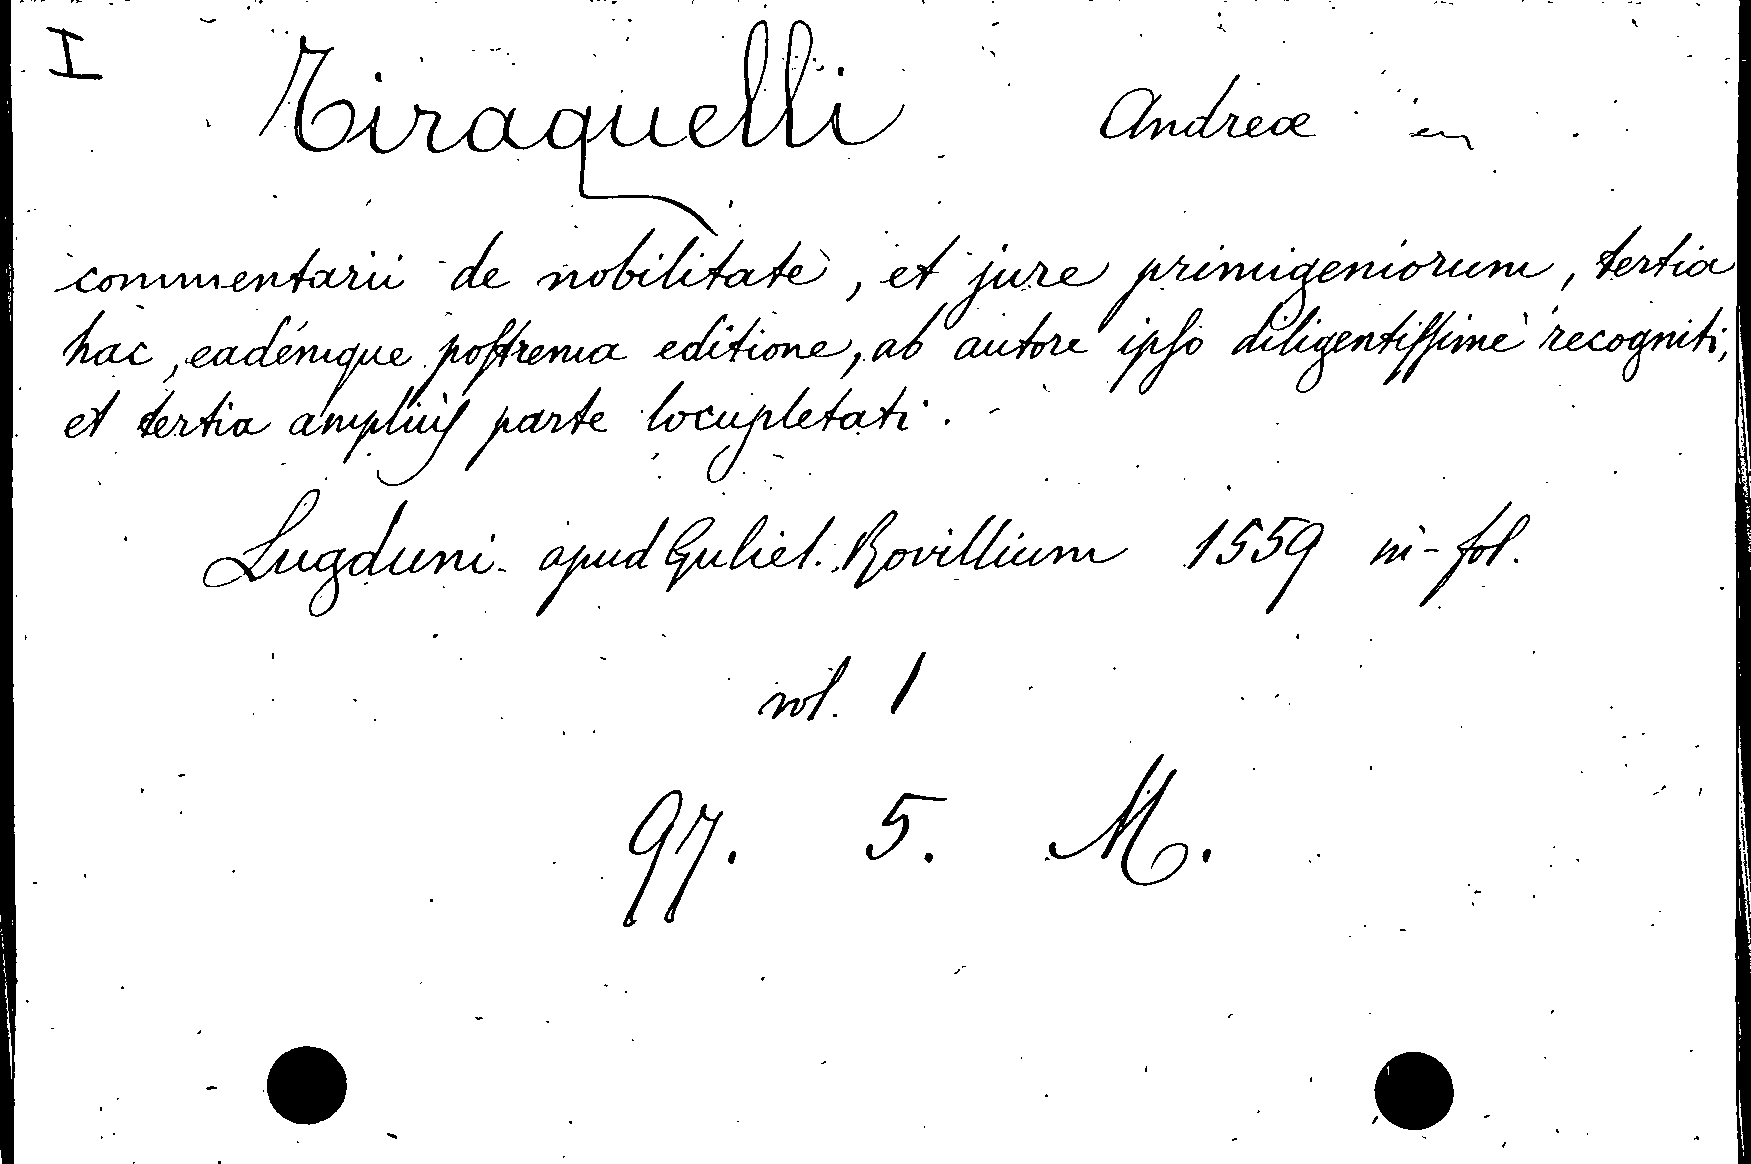 I
Tiraquelli Andreæ
commentarii de nobilitate, et jure primigeniorum, tertia
hac, eadémque poſtrema editione, ab autore ipſo diligentiſſimè recogniti,
et tertia ampliùſ parte locupletati.
Lugduni apud Guliel. Rovillium 1559 in-fol.
vol. 1
97. 5. M.